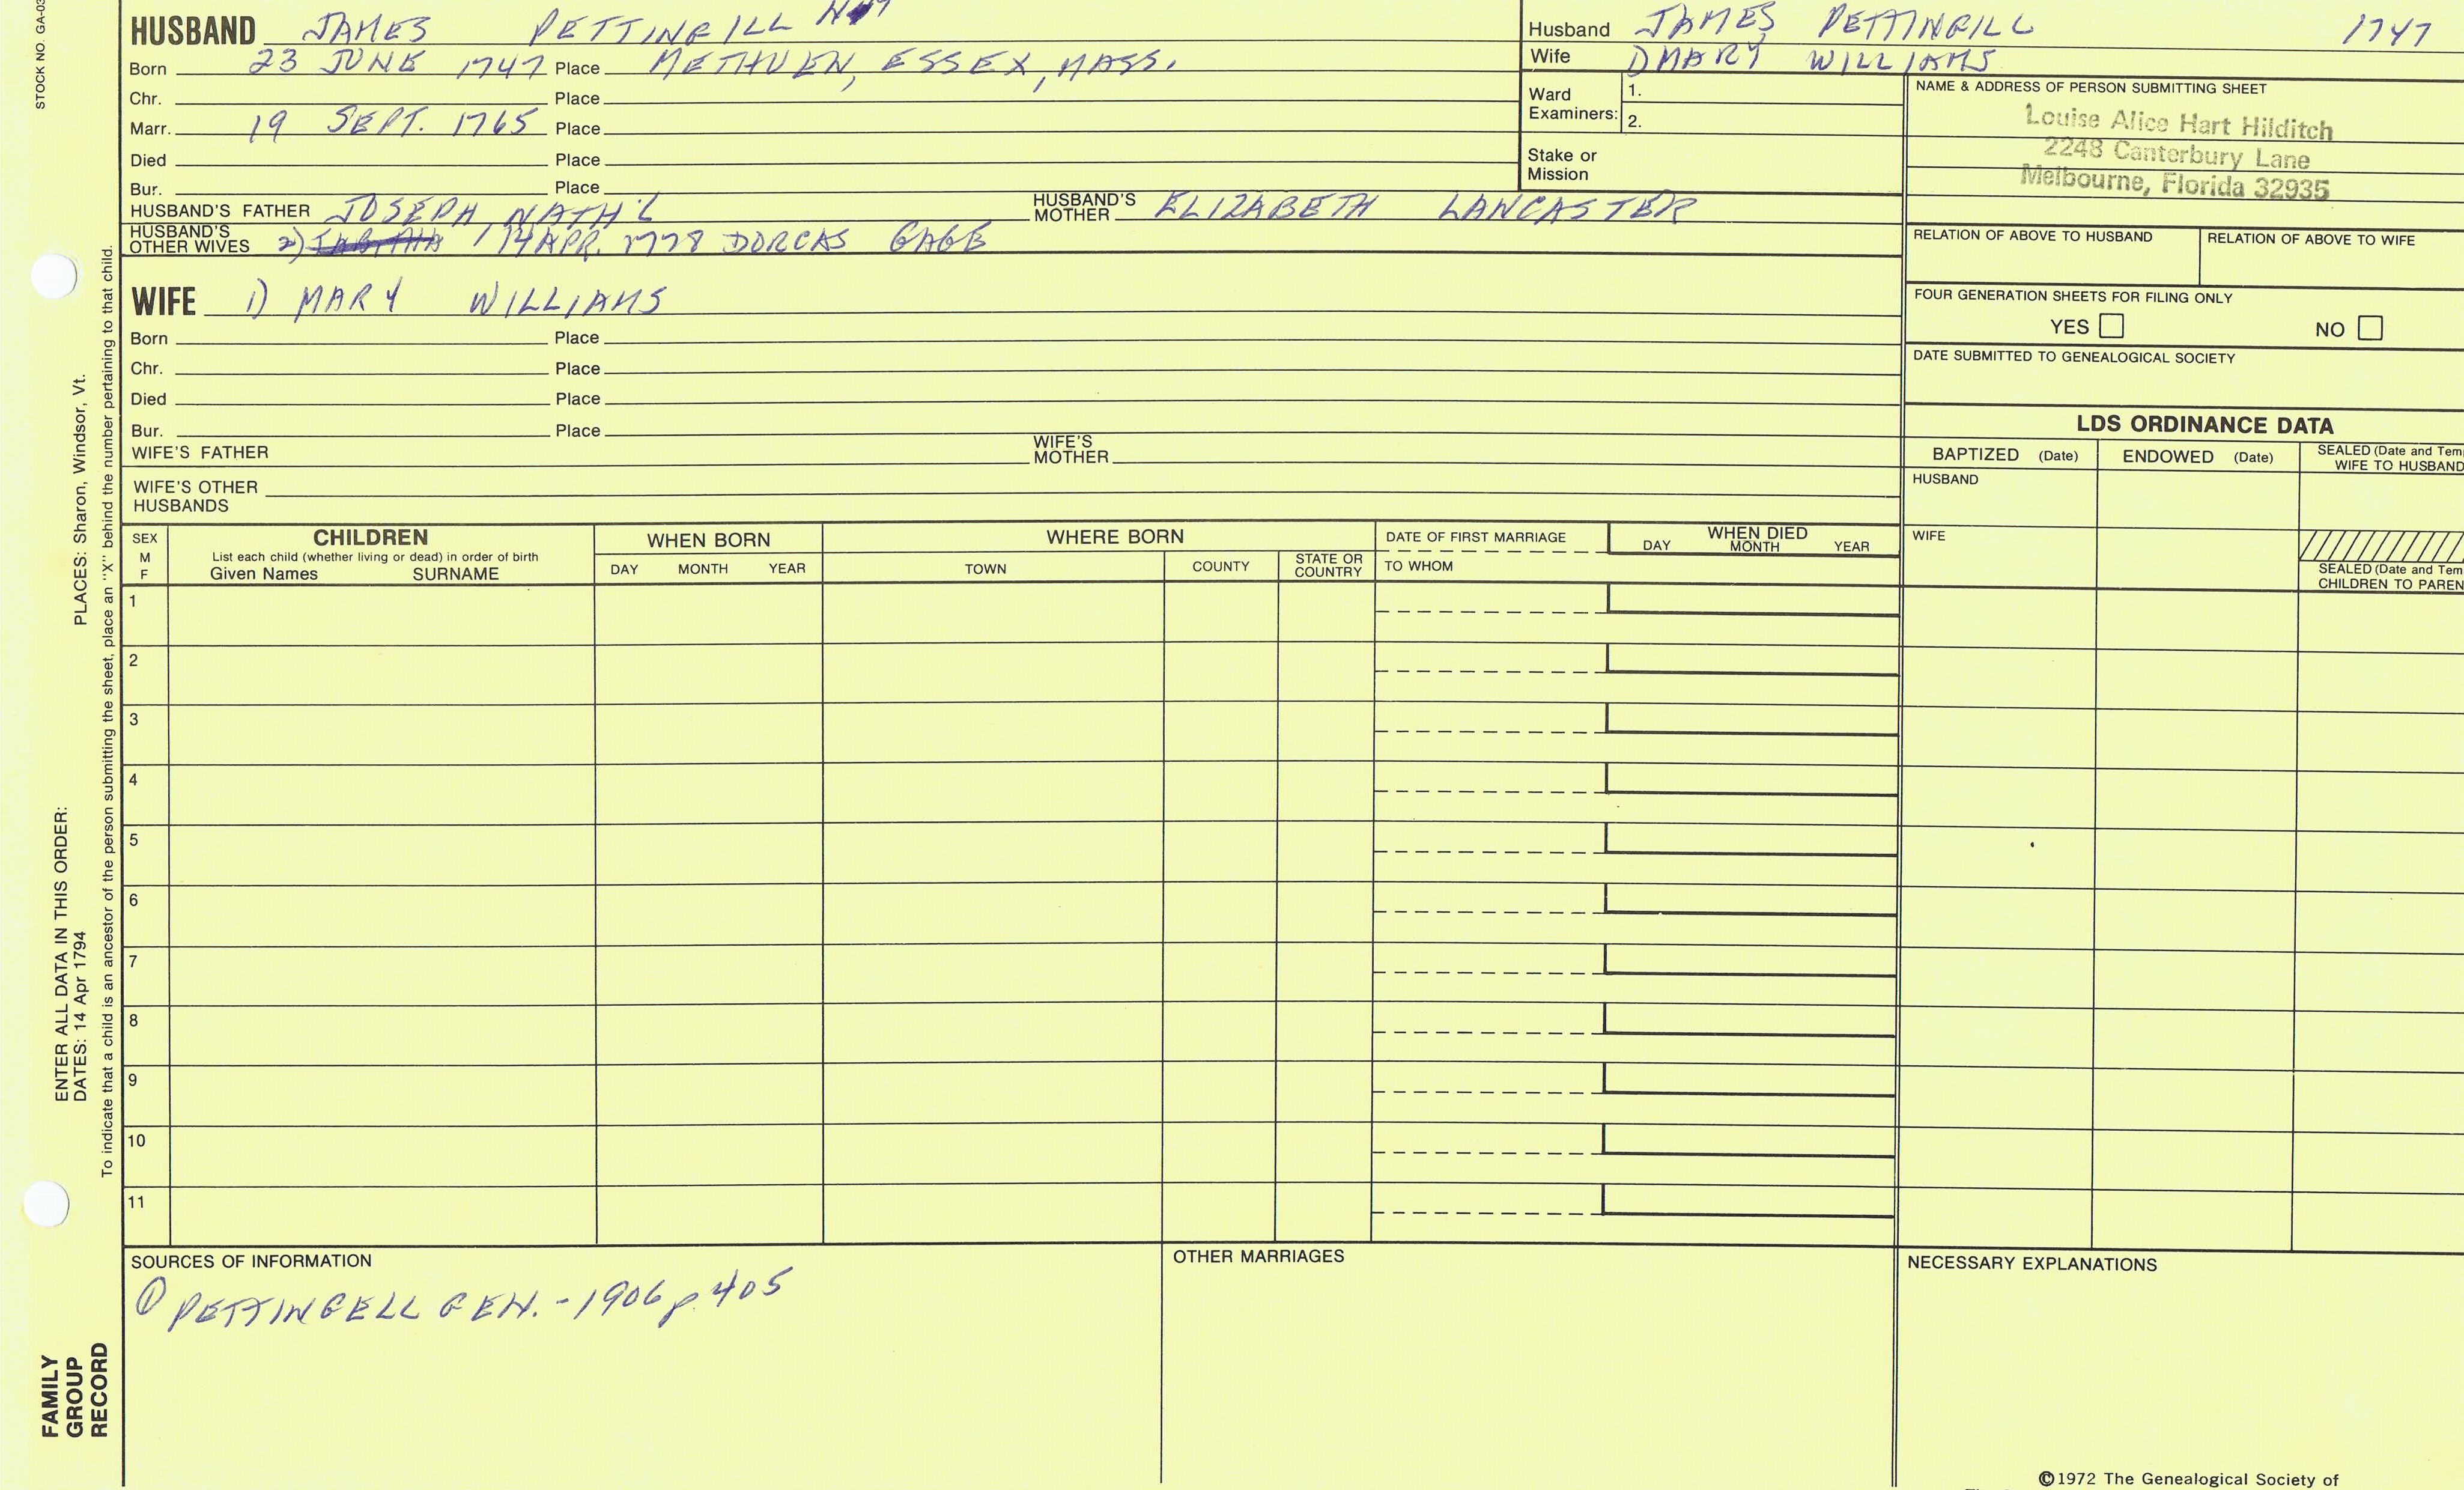 STOCK NO. GA-03
HUSBAND JAMES PETTINGILL
Born 23 JUNE 1747 Place METHUEN, ESSEX, MASS.
Chr. Place
Marr. 19 SEPT. 1765 Place
Died Place
Bur. Place
HUSBAND'S FATHER JOSEPH, NATH'L HUSBAND'S MOTHER ELIZABETH LANCASTER
HUSBAND'S OTHER WIVES 2) 14 APR. 1778 DORCAS GAGE
WIFE 1) MARY WILLIAMS
Born Place
Chr. Place
Died Place
Bur. Place
WIFE'S FATHER WIFE'S MOTHER
WIFE'S OTHER HUSBANDS
Husband JAMES PETTINGILL 1747
Wife MARY WILLIAMS
Ward Examiners: 1.
2.
Stake or Mission
NAME & ADDRESS OF PERSON SUBMITTING SHEET
Louise Alice Hart Hilditch
2248 Canterbury Lane
Melbourne, Florida 32935
RELATION OF ABOVE TO HUSBAND RELATION OF ABOVE TO WIFE
FOUR GENERATION SHEETS FOR FILING ONLY
YES NO
DATE SUBMITTED TO GENEALOGICAL SOCIETY
LDS ORDINANCE DATA
BAPTIZED (Date) ENDOWED (Date) SEALED (Date and Tem
WIFE TO HUSBAND
HUSBAND
WIFE
SEALED (Date and Tem
CHILDREN TO PAREN
SEX M F
CHILDREN
List each child (whether living or dead) in order of birth
Given Names SURNAME
WHEN BORN
DAY MONTH YEAR
WHERE BORN
TOWN COUNTY STATE OR COUNTRY
DATE OF FIRST MARRIAGE
TO WHOM
WHEN DIED
DAY MONTH YEAR
1
2
3
4
5
6
7
8
9
10
11
SOURCES OF INFORMATION
① PETTINGELL GEN. - 1906 p. 405
OTHER MARRIAGES
NECESSARY EXPLANATIONS
©1972 The Genealogical Society of
FAMILY
GROUP
RECORD
ENTER ALL DATA IN THIS ORDER:
DATES: 14 Apr 1794 PLACES: Sharon, Windsor, Vt.
To indicate that a child is an ancestor of the person submitting the sheet, place an "X" behind the number pertaining to that child.